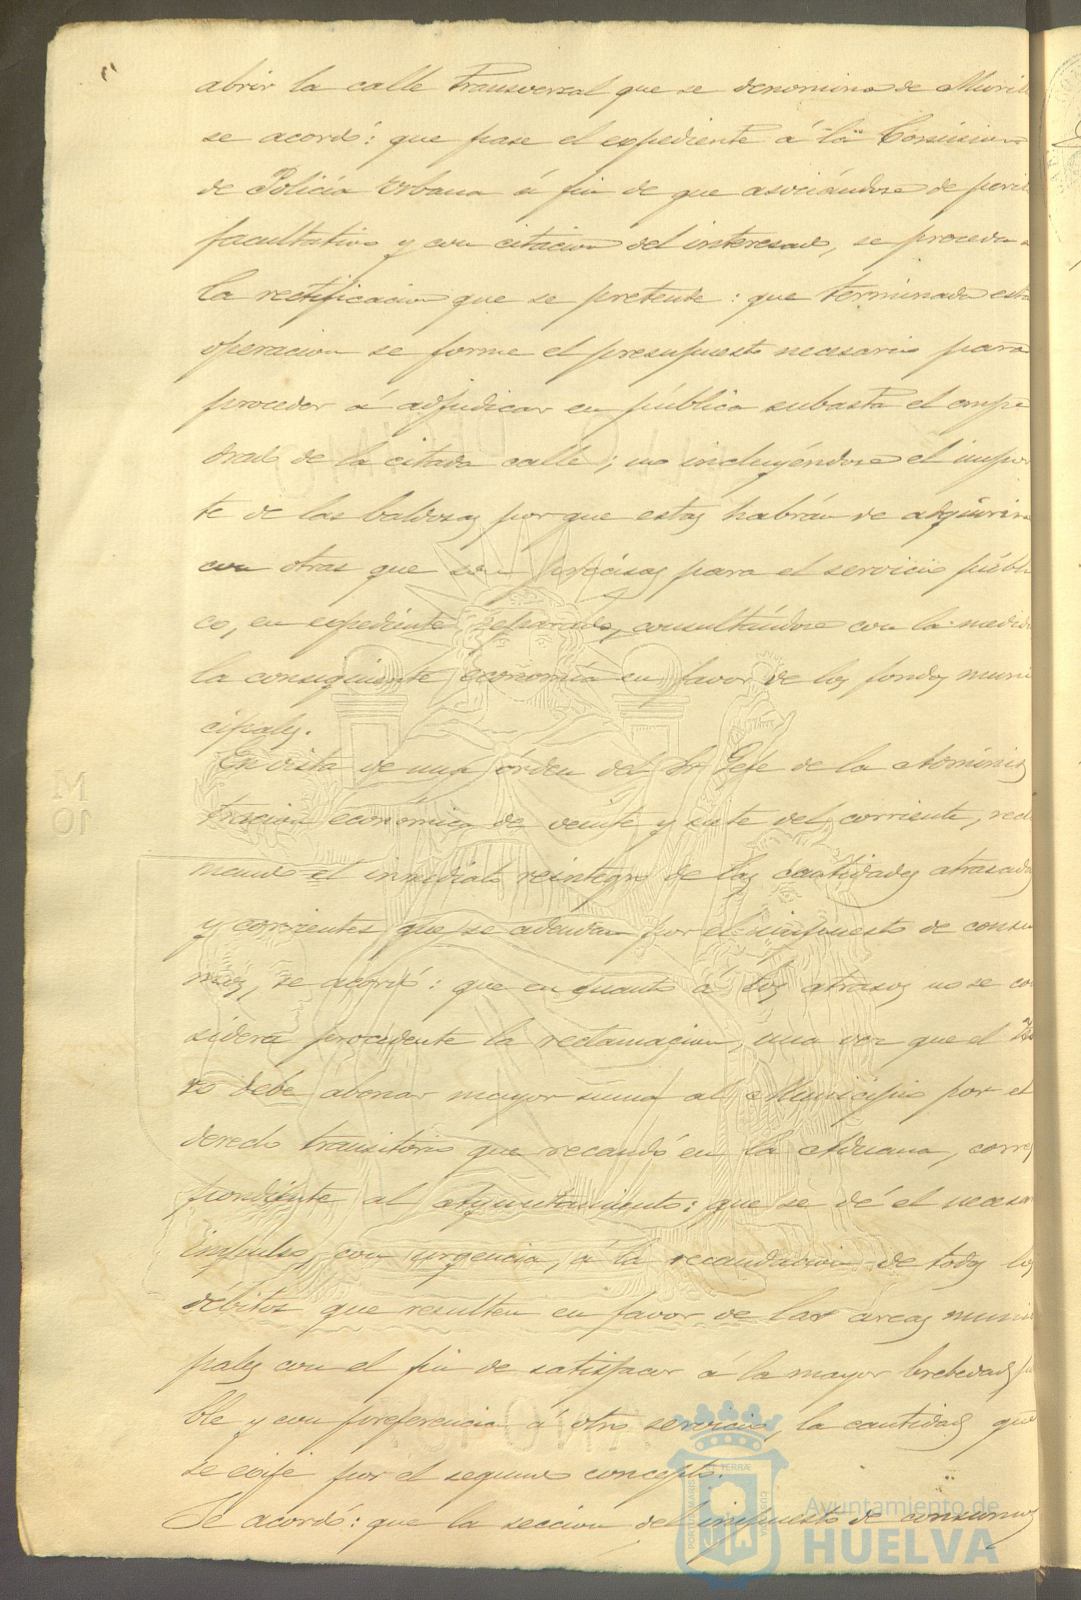 abrir la calle transversal que se denomina de Muril
se acordó: que pase el expediente á la Comision
de Policía Urbana á fin de que asociándose de perit
facultativo y con citacion del interesado, se proceda a
la rectificacion que se pretende: que terminada esta
operacion se forme el presupuesto necesario para
proceder á adjudicar en pública subasta el empe
drado de la citada calle; no incluyéndose el impor
te de las baldosas porque estas habrán de adquirirse
con otras que son precisas para el servicio públi
co, en expediente separado, consultándose con la medida
la consiguiente economía en favor de los fondos muni
cipales.
En vista de una órden del Sr Gefe de la Adminis
tracion económica de veinte y siete del corriente, recla
mando el inmediato reintegro de las cantidades atrasadas
y corrientes que se adeudan por el impuesto de consu
mos, se acordó: que en cuanto á los atrasos no se con
sidera procedente la reclamacion, una vez que el
debe abonar mayor suma al Municipio por el
derecho transitorio que recaudó en la Aduana, corres
pondiente al Ayuntamiento: que se dé el necesar
impulso, con urgencia, á la recaudacion de todos los
débitos que resulten en favor de las arcas munici
pales con el fin de satisfacer á la mayor brebedad
ble y con preferencia á otro servicio, la cantidad que
se exije por el segundo concepto.
Se acordó: que la seccion del impuesto de consumos
Ayuntamiento de
HUELVA